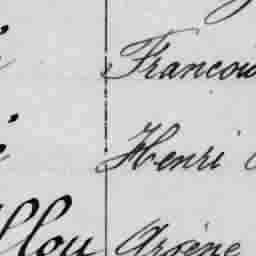 Francois
Henri
llou Arsène